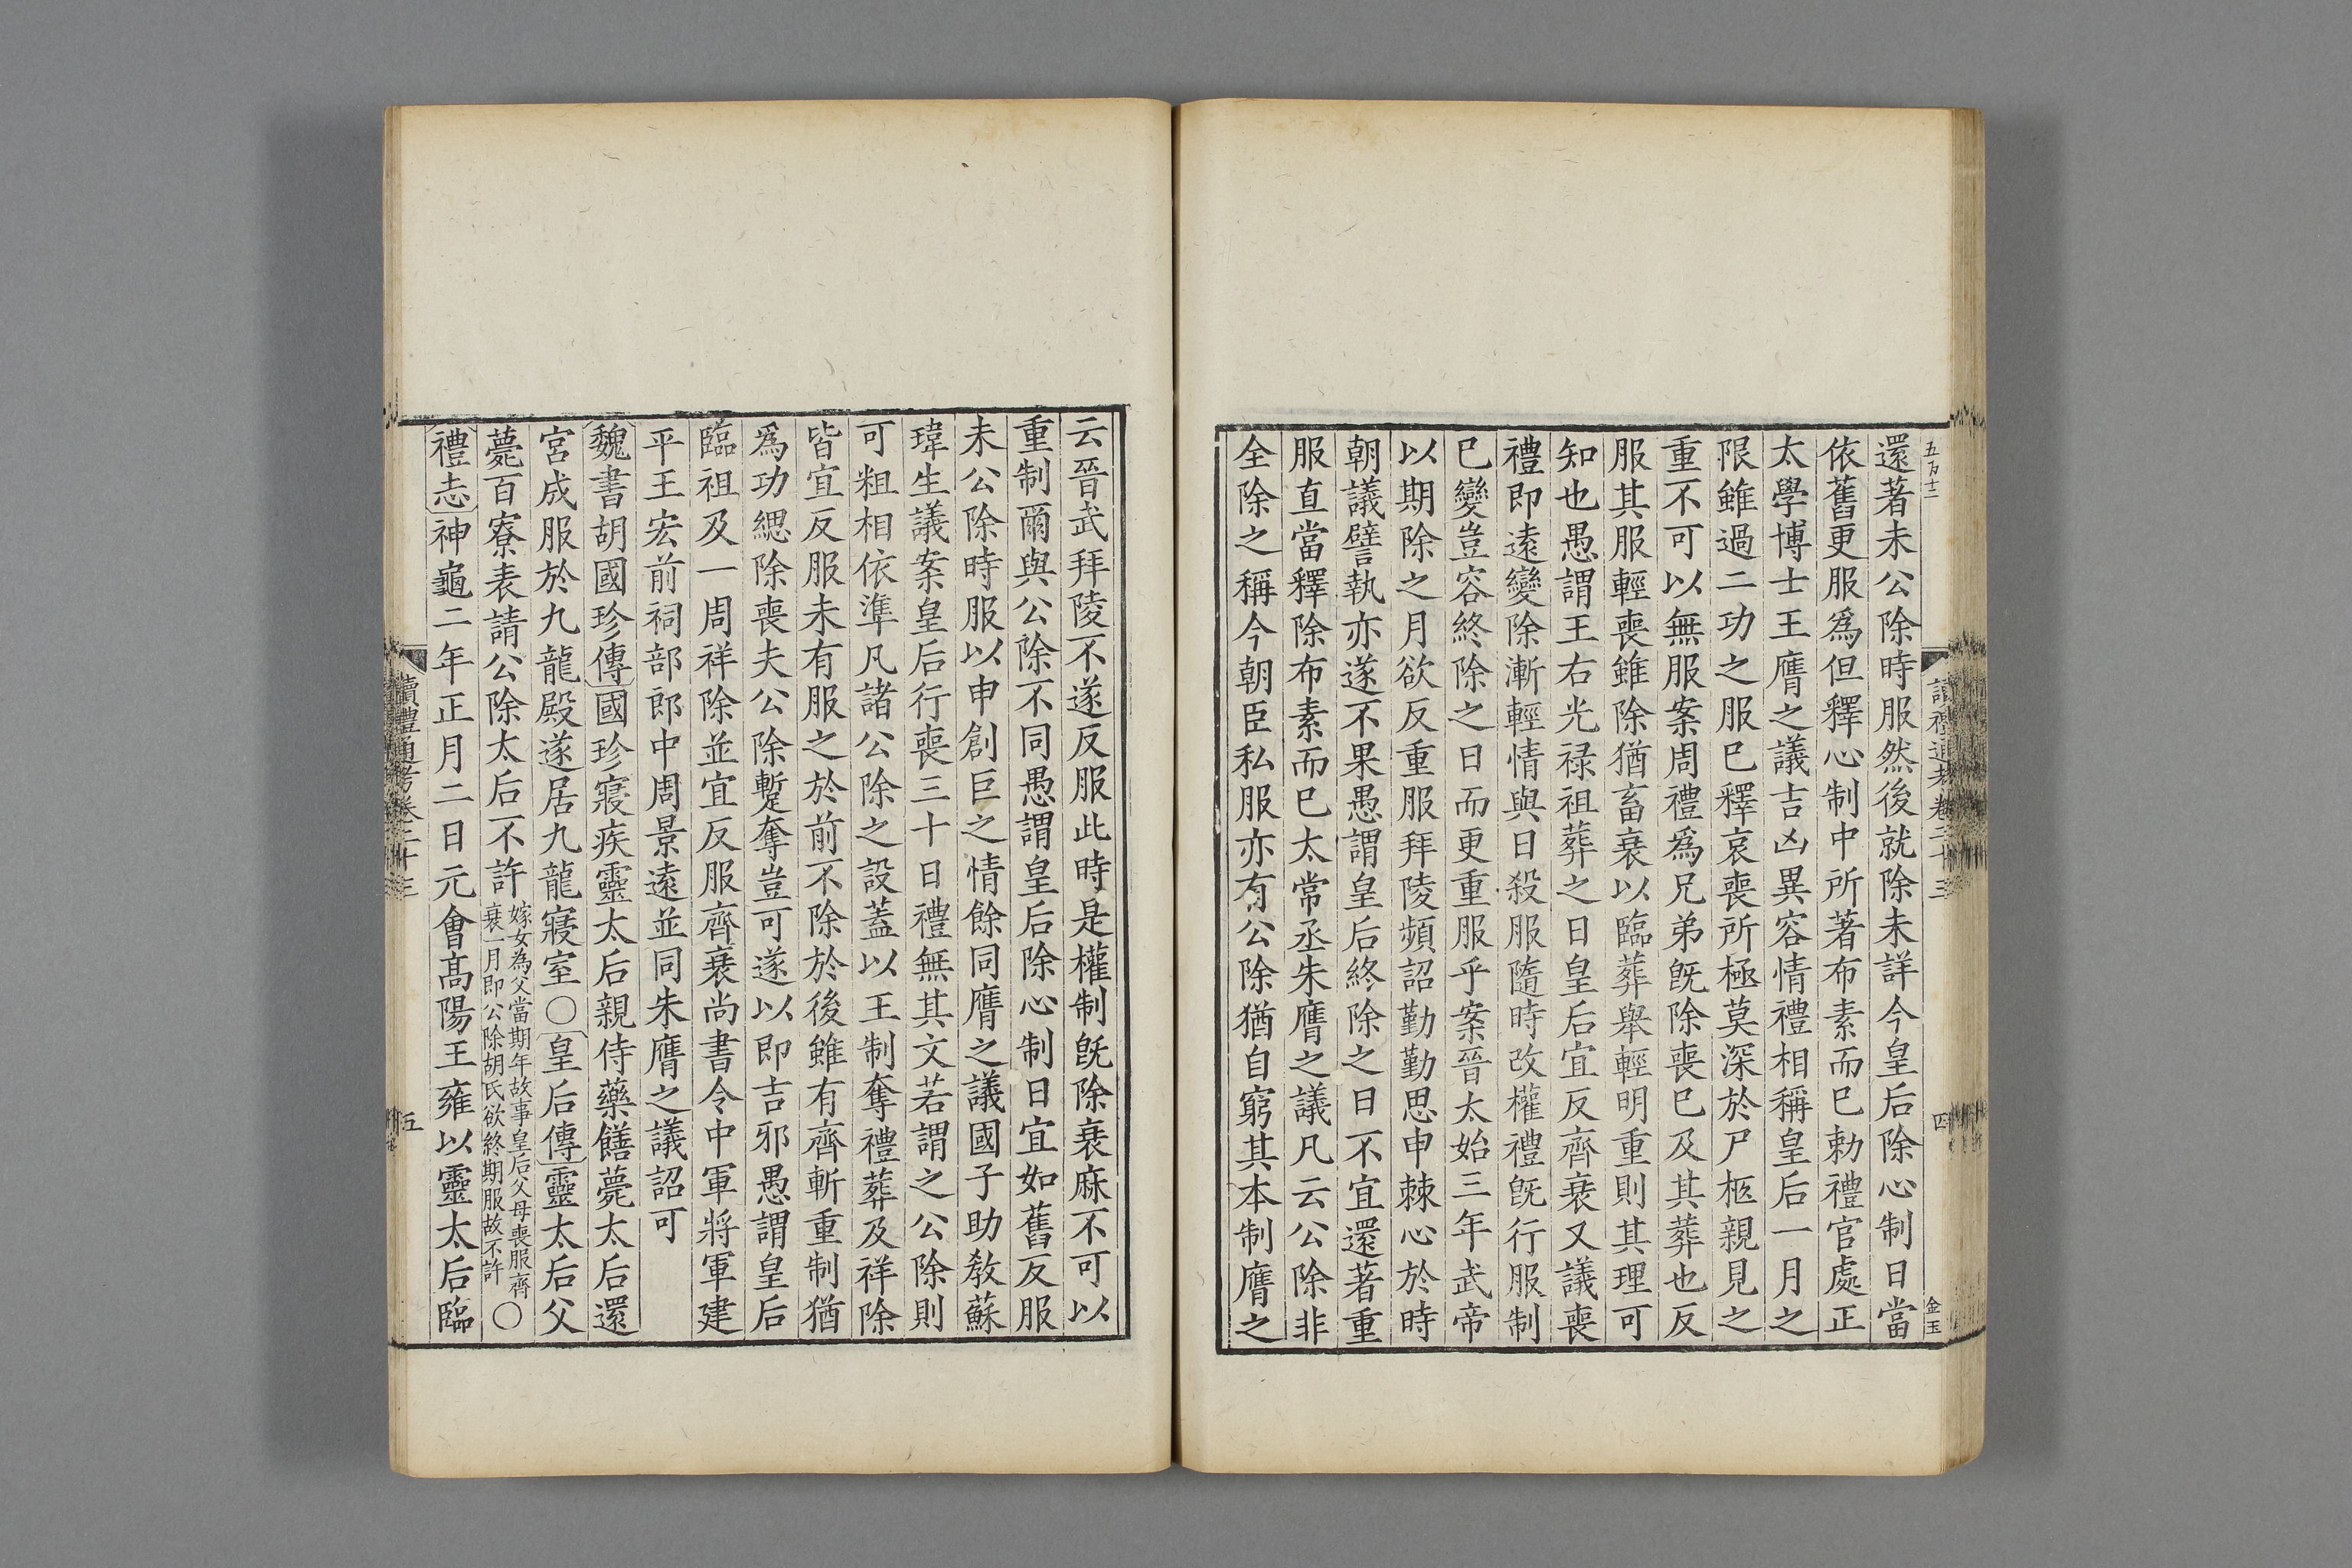 還著未公除時服然後就除未詳今皇后除心制日當
依舊更服爲但釋心制中所著布素而已勅禮官處正
太學博士王膺之議吉凶異容情禮相稱皇后一月之
限雖過二功之服已釋哀喪所極莫深於尸柩親見之
重不可以無服案周禮爲兄弟旣除喪巳及其葬也反
服其服輕喪雖除猶畜衰以臨葬舉輕明重則其理可
知也愚謂王右光禄祖葬之日皇后宜反齊衰又議喪
禮即逺變除漸輕情與日殺服隨時改權禮旣行服制
巳變豈容終除之日而更重服乎案晉太始三年武帝
以期除之月欲反重服拜陵頻詔勤勤思申棘心於時
朝議譬執亦遂不果愚謂皇后終除之日不宜還著重
服直當釋除布素而巳太常丞朱膺之議凡云公除非
全除之稱今朝臣私服亦有公除猶自窮其本制膺之
五百十二
讀禮通考卷二十三
四
金玉
云晉武拜陵不遂反服此時是權制旣除衰麻不可以
重制爾與公除不同愚謂皇后除心制日宜如舊反服
未公除時服以申創巨之情餘同膺之議國子助敎蘇
瑋生議案皇后行喪三十日禮無其文若謂之公除則
可粗相依準凡諸公除之設蓋以王制奪禮葬及祥除
皆宜反服未有服之於前不除於後雖有齊斬重制猶
爲功緦除喪夫公除蹔奪豈可遂以即吉邪愚謂皇后
臨祖及一周祥除並宜反服齊衰尚書令中軍將軍建
平王宏前祠部郎中周景遠並同朱膺之議詔可
魏書胡國珍傳國珍寢疾靈太后親侍藥饍薨太后還
宮成服於九龍殿遂居九龍寢室〇皇后傳靈太后父
薨百寮表請公除太后不許嫁女為父當期年故事皇后父母喪服齊
衰一月即公除胡氏欲終期服故不許〇
禮志神龜二年正月二日元會髙陽王雍以靈太后臨
讀禮通考卷二十三
五